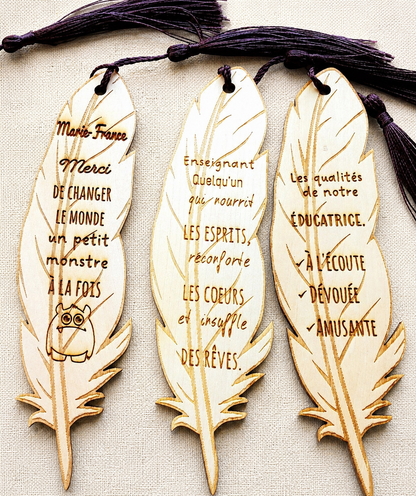 Marie-France
Merci
DE CHANGER
LE MONDE
un petit
monstre
À LA FOIS
Enseignant
Quelqu'un
qui nourrit
LES ESPRITS,
réconforte
LES COEURS
et insuffle
DES RÊVES.
Les qualités
de notre
ÉDUCATRICE.
✓À L'ÉCOUTE
✓DÉVOUÉE
✓AMUSANTE